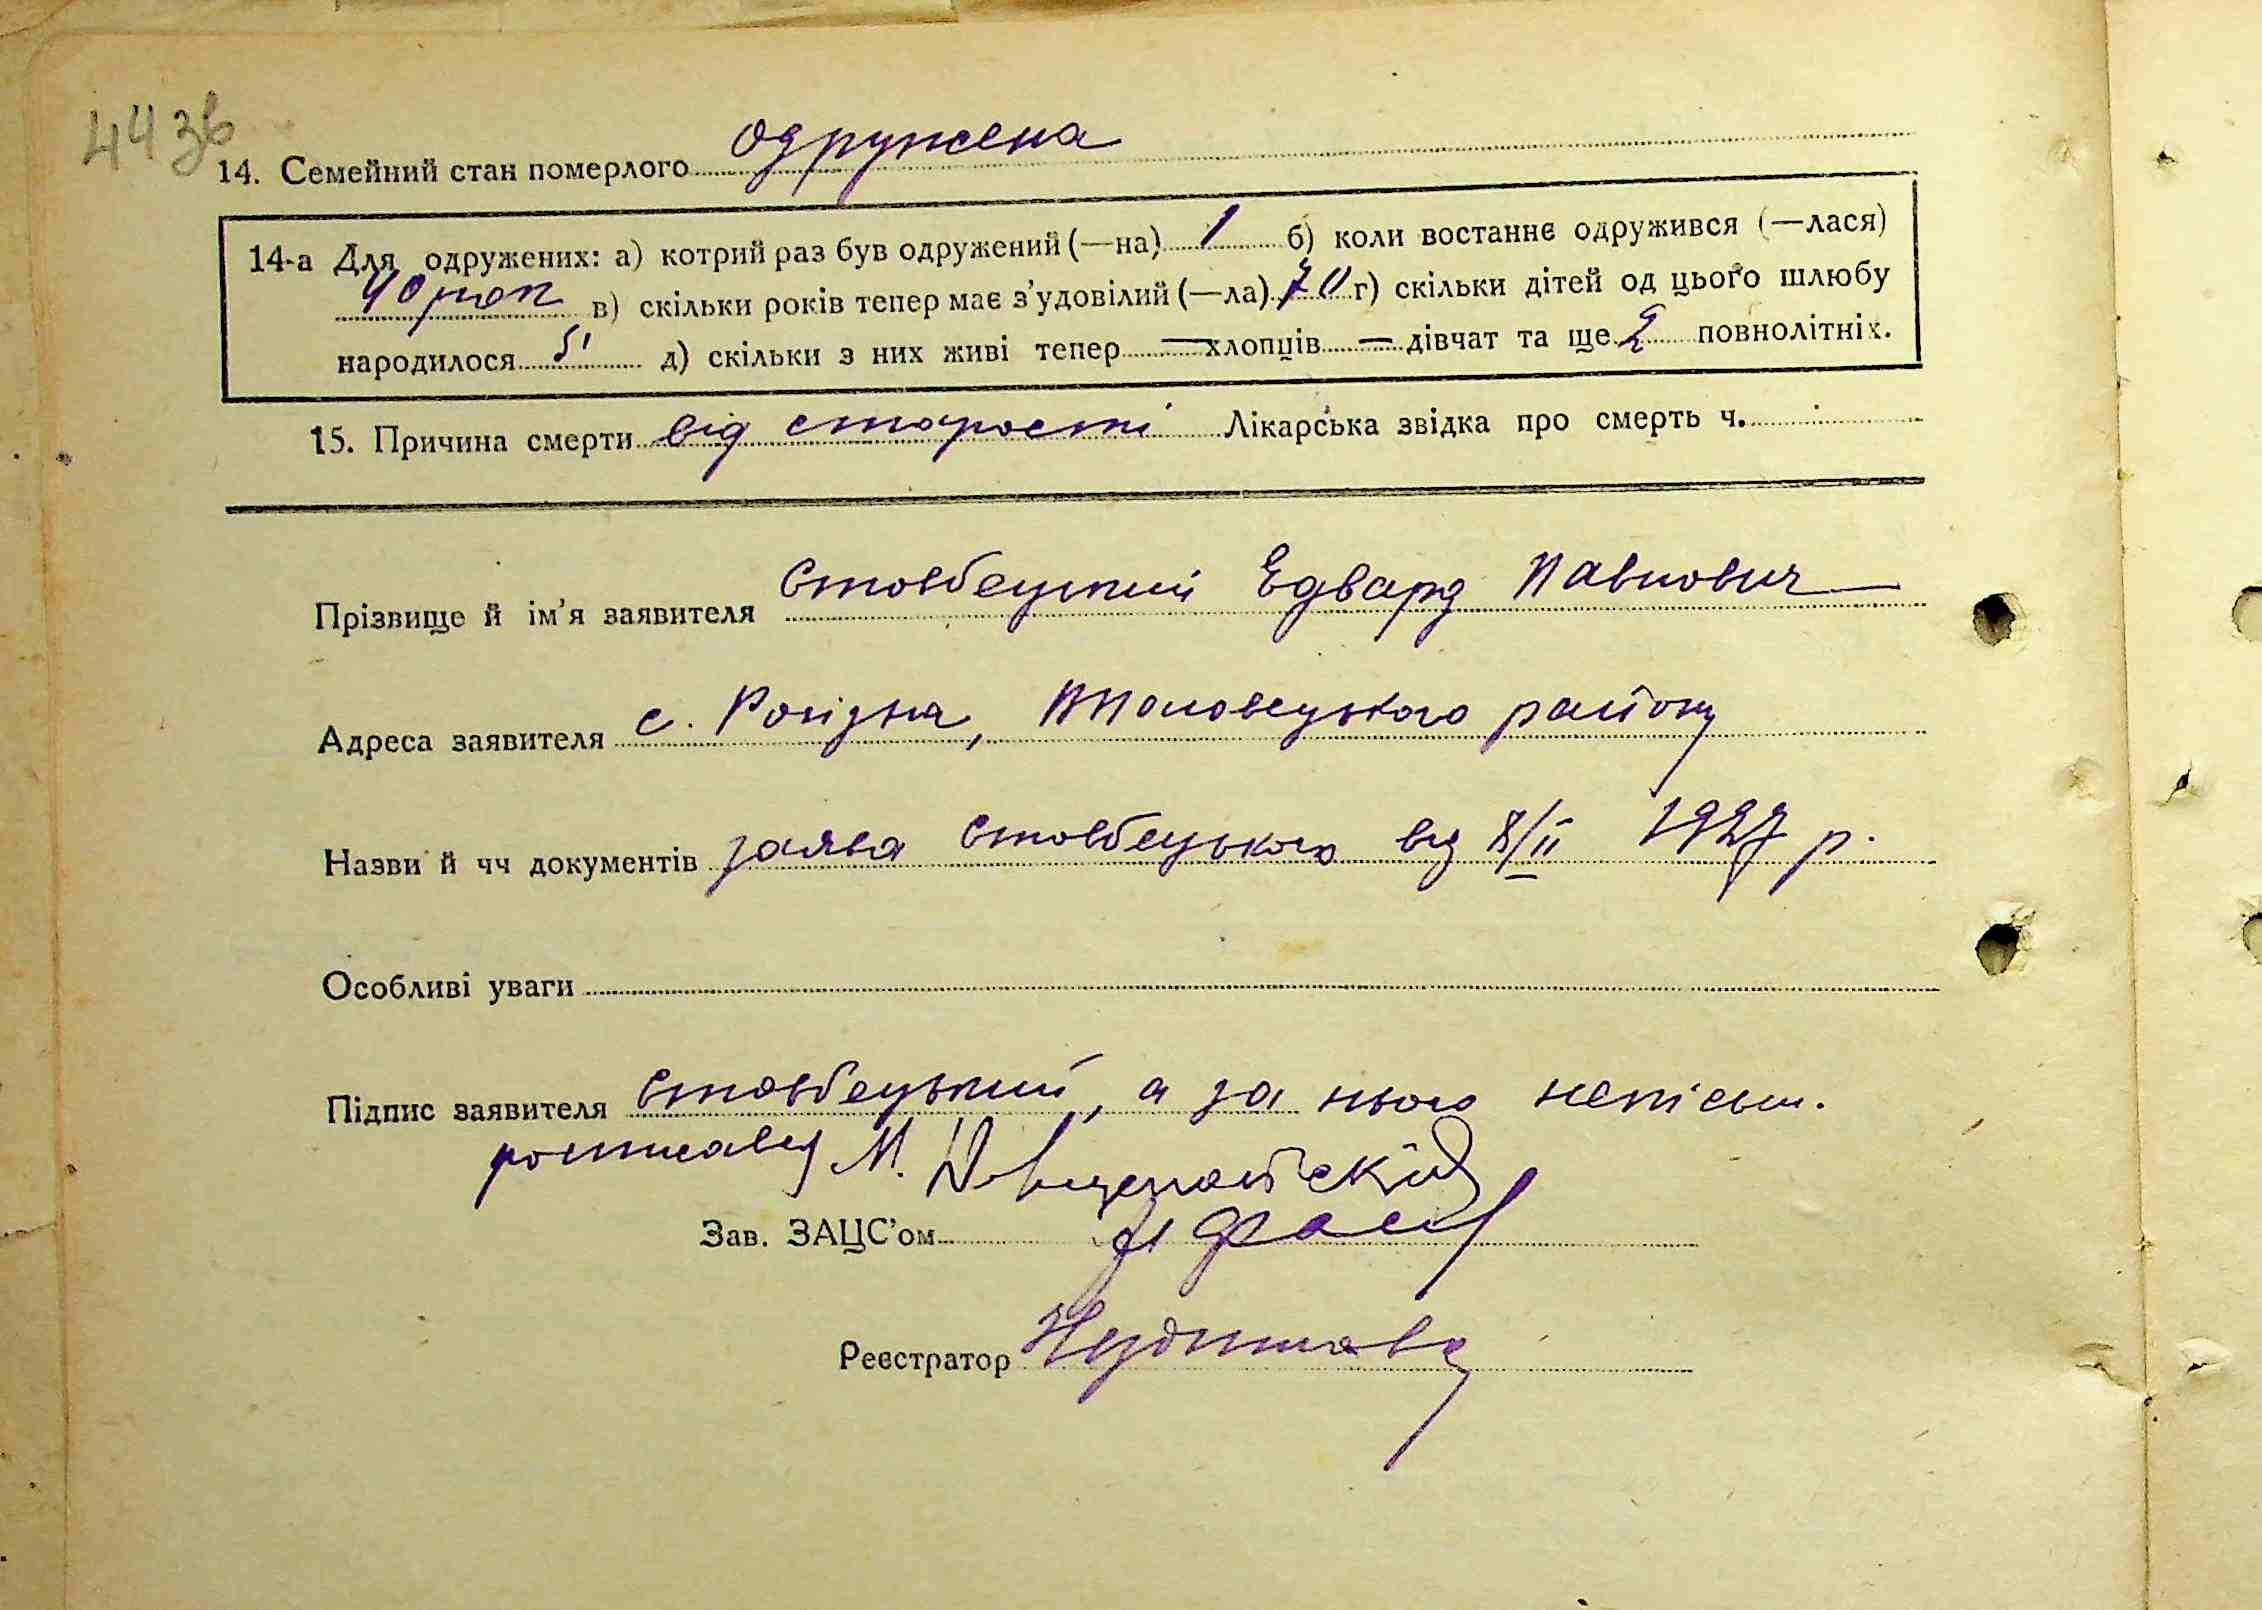 443в
14. Семейний стан померлого одружена
14-а Для одружених: а) котрий раз був одружений (—на) 1 б) коли востаннє одружився (—лася)
40 рок в) скільки років тепер має з'удовілий (—ла) 70 г) скільки дітей од цього шлюбу
народилося 5 д) скільки з них живі тепер — хлопців — дівчат та ще 2 повнолітніх.
15. Причина смерти від старости Лікарська звідка про смерть ч.
Прізвище й ім'я заявителя Стовбецький Едвард Павлович
Адреса заявителя с. Рогізна, районy
Назви й чч документів заява Стовбецького від 8/II 1927 р.
Особливі уваги
Підпис заявителя Стовбецький, а за нього неписьм.
росписавсь М.
Зав. ЗАЦС'ом
Реєстратор